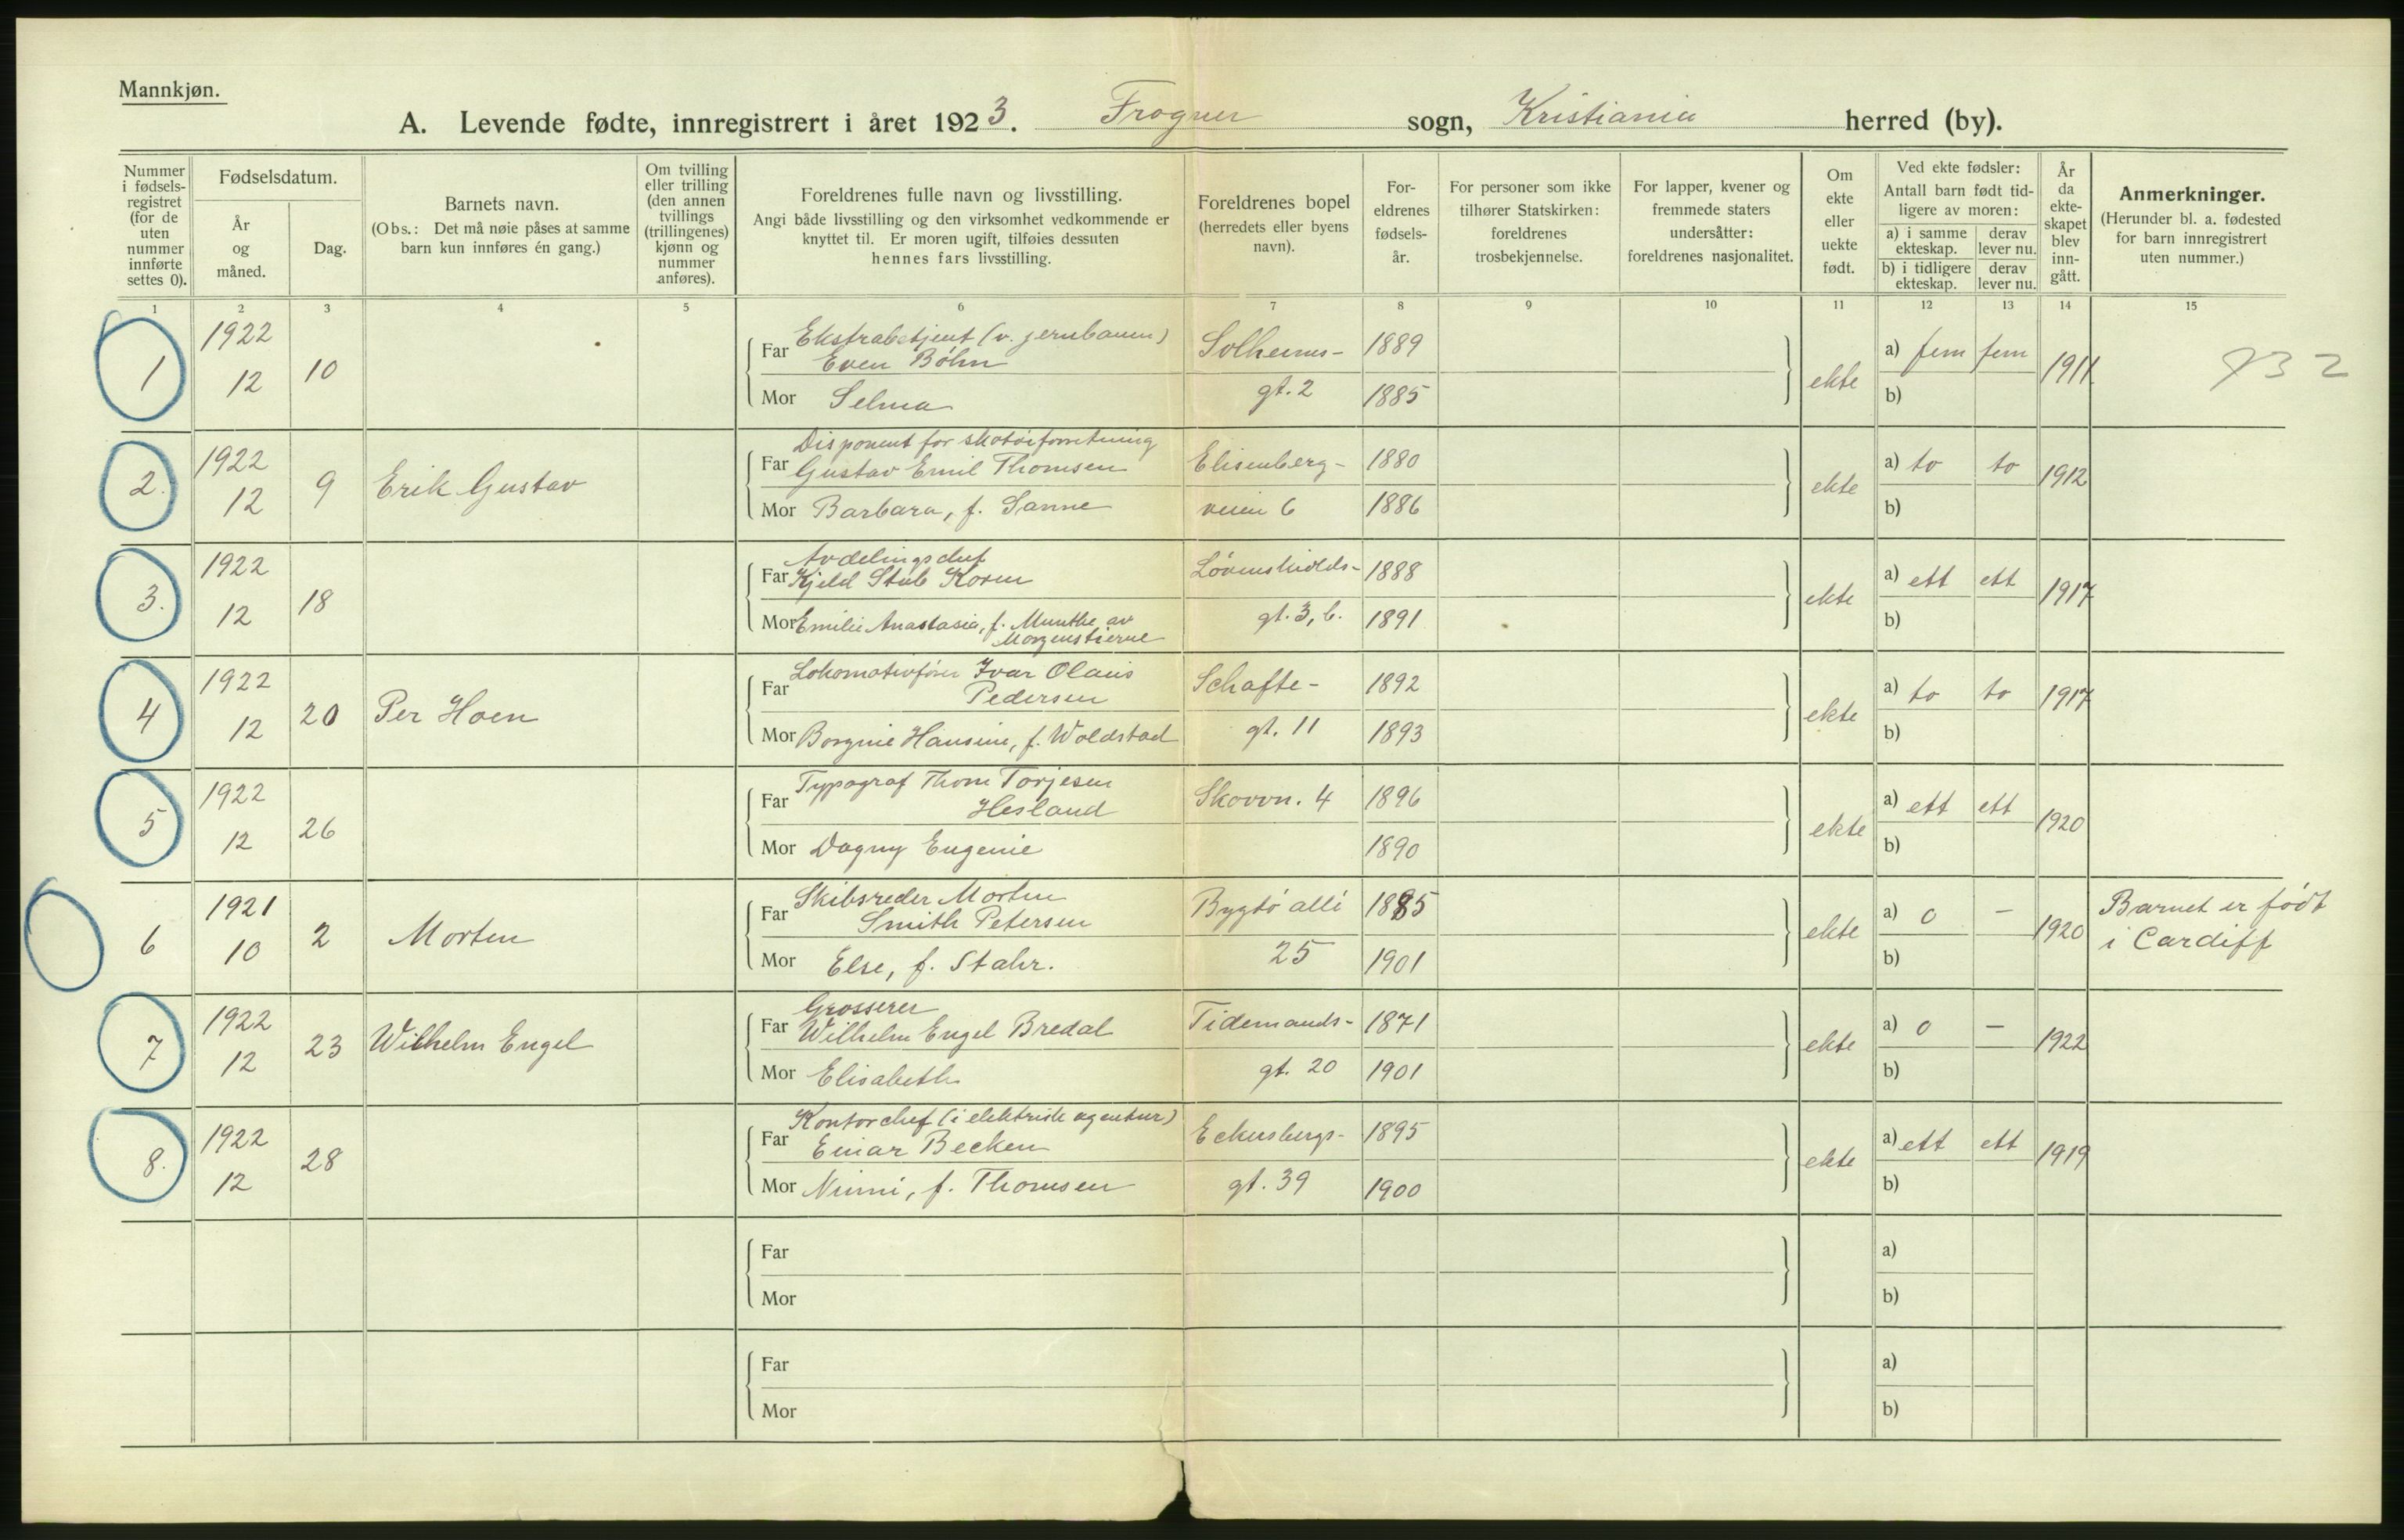 Mannkjøn.
A. Levende fødte, innregistrert i året 1923. Frogner sogn, Kristiania herred (by).
Nummer
i fødsels-
registret
(for de
uten
nummer
innførte
settes 0).
Fødselsdatum.
År
og
måned.
Dag.
Barnets navn.
(Obs.: Det må nøie påses at samme
barn kun innføres én gang.)
Om tvilling
eller trilling
(den annen
tvillings
(trillingenes)
kjønn og
nummer
anføres).
Foreldrenes fulle navn og livsstilling.
Angi både livsstilling og den virksomhet vedkommende er
knyttet til. Er moren ugift, tilføies dessuten
hennes fars livsstilling.
Foreldrenes bopel
(herredets eller byens
navn).
For-
eldrenes
fødsels-
år.
For personer som ikke
tilhører Statskirken:
foreldrenes
trosbekjennelse.
For lapper, kvener og
fremmede staters
undersåtter:
foreldrenes nasjonalitet.
Om
ekte
eller
uekte
født.
Ved ekte fødsler:
Antall barn født tid-
ligere av moren:
a) i samme
ekteskap.
derav
lever nu.
b) i tidligere
ekteskap.
derav
lever nu.
År
da
ekte-
skapet
blev
inn-
gått.
Anmerkninger.
(Herunder bl. a. fødested
for barn innregistrert
uten nummer.)
1 2 3 4 5 6 7 8 9 10 11 12 13 14 15
1 1922 12 10
Far Ekstrabetjent (v. jernbanen)
Even Böhn Solheims- 1889
Mor Selma gt. 2 1885
ekte a) fem fem 1911 732
b)
2. 1922 12 9 Erik Gustav
Far Disponent for skotöiforretning
Gustav Emil Thomsen Elisenberg- 1880
Mor Barbara, f. Sanne veien 6 1886
ekte a) to to 1912
b)
3. 1922 12 18
Far Avdelingschef
Kjeld Stub Koren Lövenskiolds- 1888
Mor Emilie Anastasia, f. Munthe av
Morgenstierne gt. 3, b. 1891
ekte a) ett ett 1917
b)
4 1922 12 20 Per Hoen
Far Lokomotivförer Ivar Olaus
Pedersen Schafte- 1892
Mor Borgnie Hansine, f. Woldstad gt. 11 1893
ekte a) to to 1917
b)
5 1922 12 26
Far Typograf Thom Torjesen
Hesland Skovvn. 4 1896
Mor Dagny Eugenie 1890
ekte a) ett ett 1920
b)
6 1921 10 2 Morten
Far Skibsreder Morten
Smith Petersen Bygdö allé 1885
Mor Else, f. Stahr. 25 1901
ekte a) 0 — 1920 Barnet er födt
b) i Cardiff
7 1922 12 23 Wilhelm Engel
Far Grosserer
Wilhelm Engel Bredal Tidemands- 1871
Mor Elisabeth gt. 20 1901
ekte a) 0 — 1922
b)
8. 1922 12 28
Far Kontorchef (i elektrisk agentur)
Einar Becken Eckersbergs- 1895
Mor Ninni, f. Thomsen gt. 39 1900
ekte a) ett ett 1919
b)
Far a)
Mor b)
Far a)
Mor b)